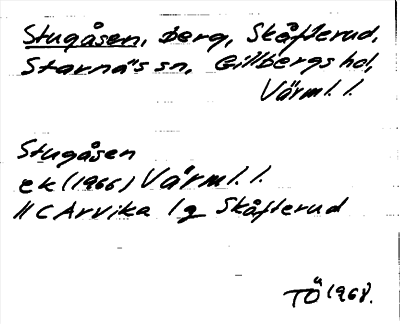 Stugåsen, berg, Skåfterud,
Starnäs sn, Gillbergs hd,
Värml. l.
Stugåsen
ek (1966) Värml. l.
11 C Arvika 1 g Skåfterud
TÖ 1968.